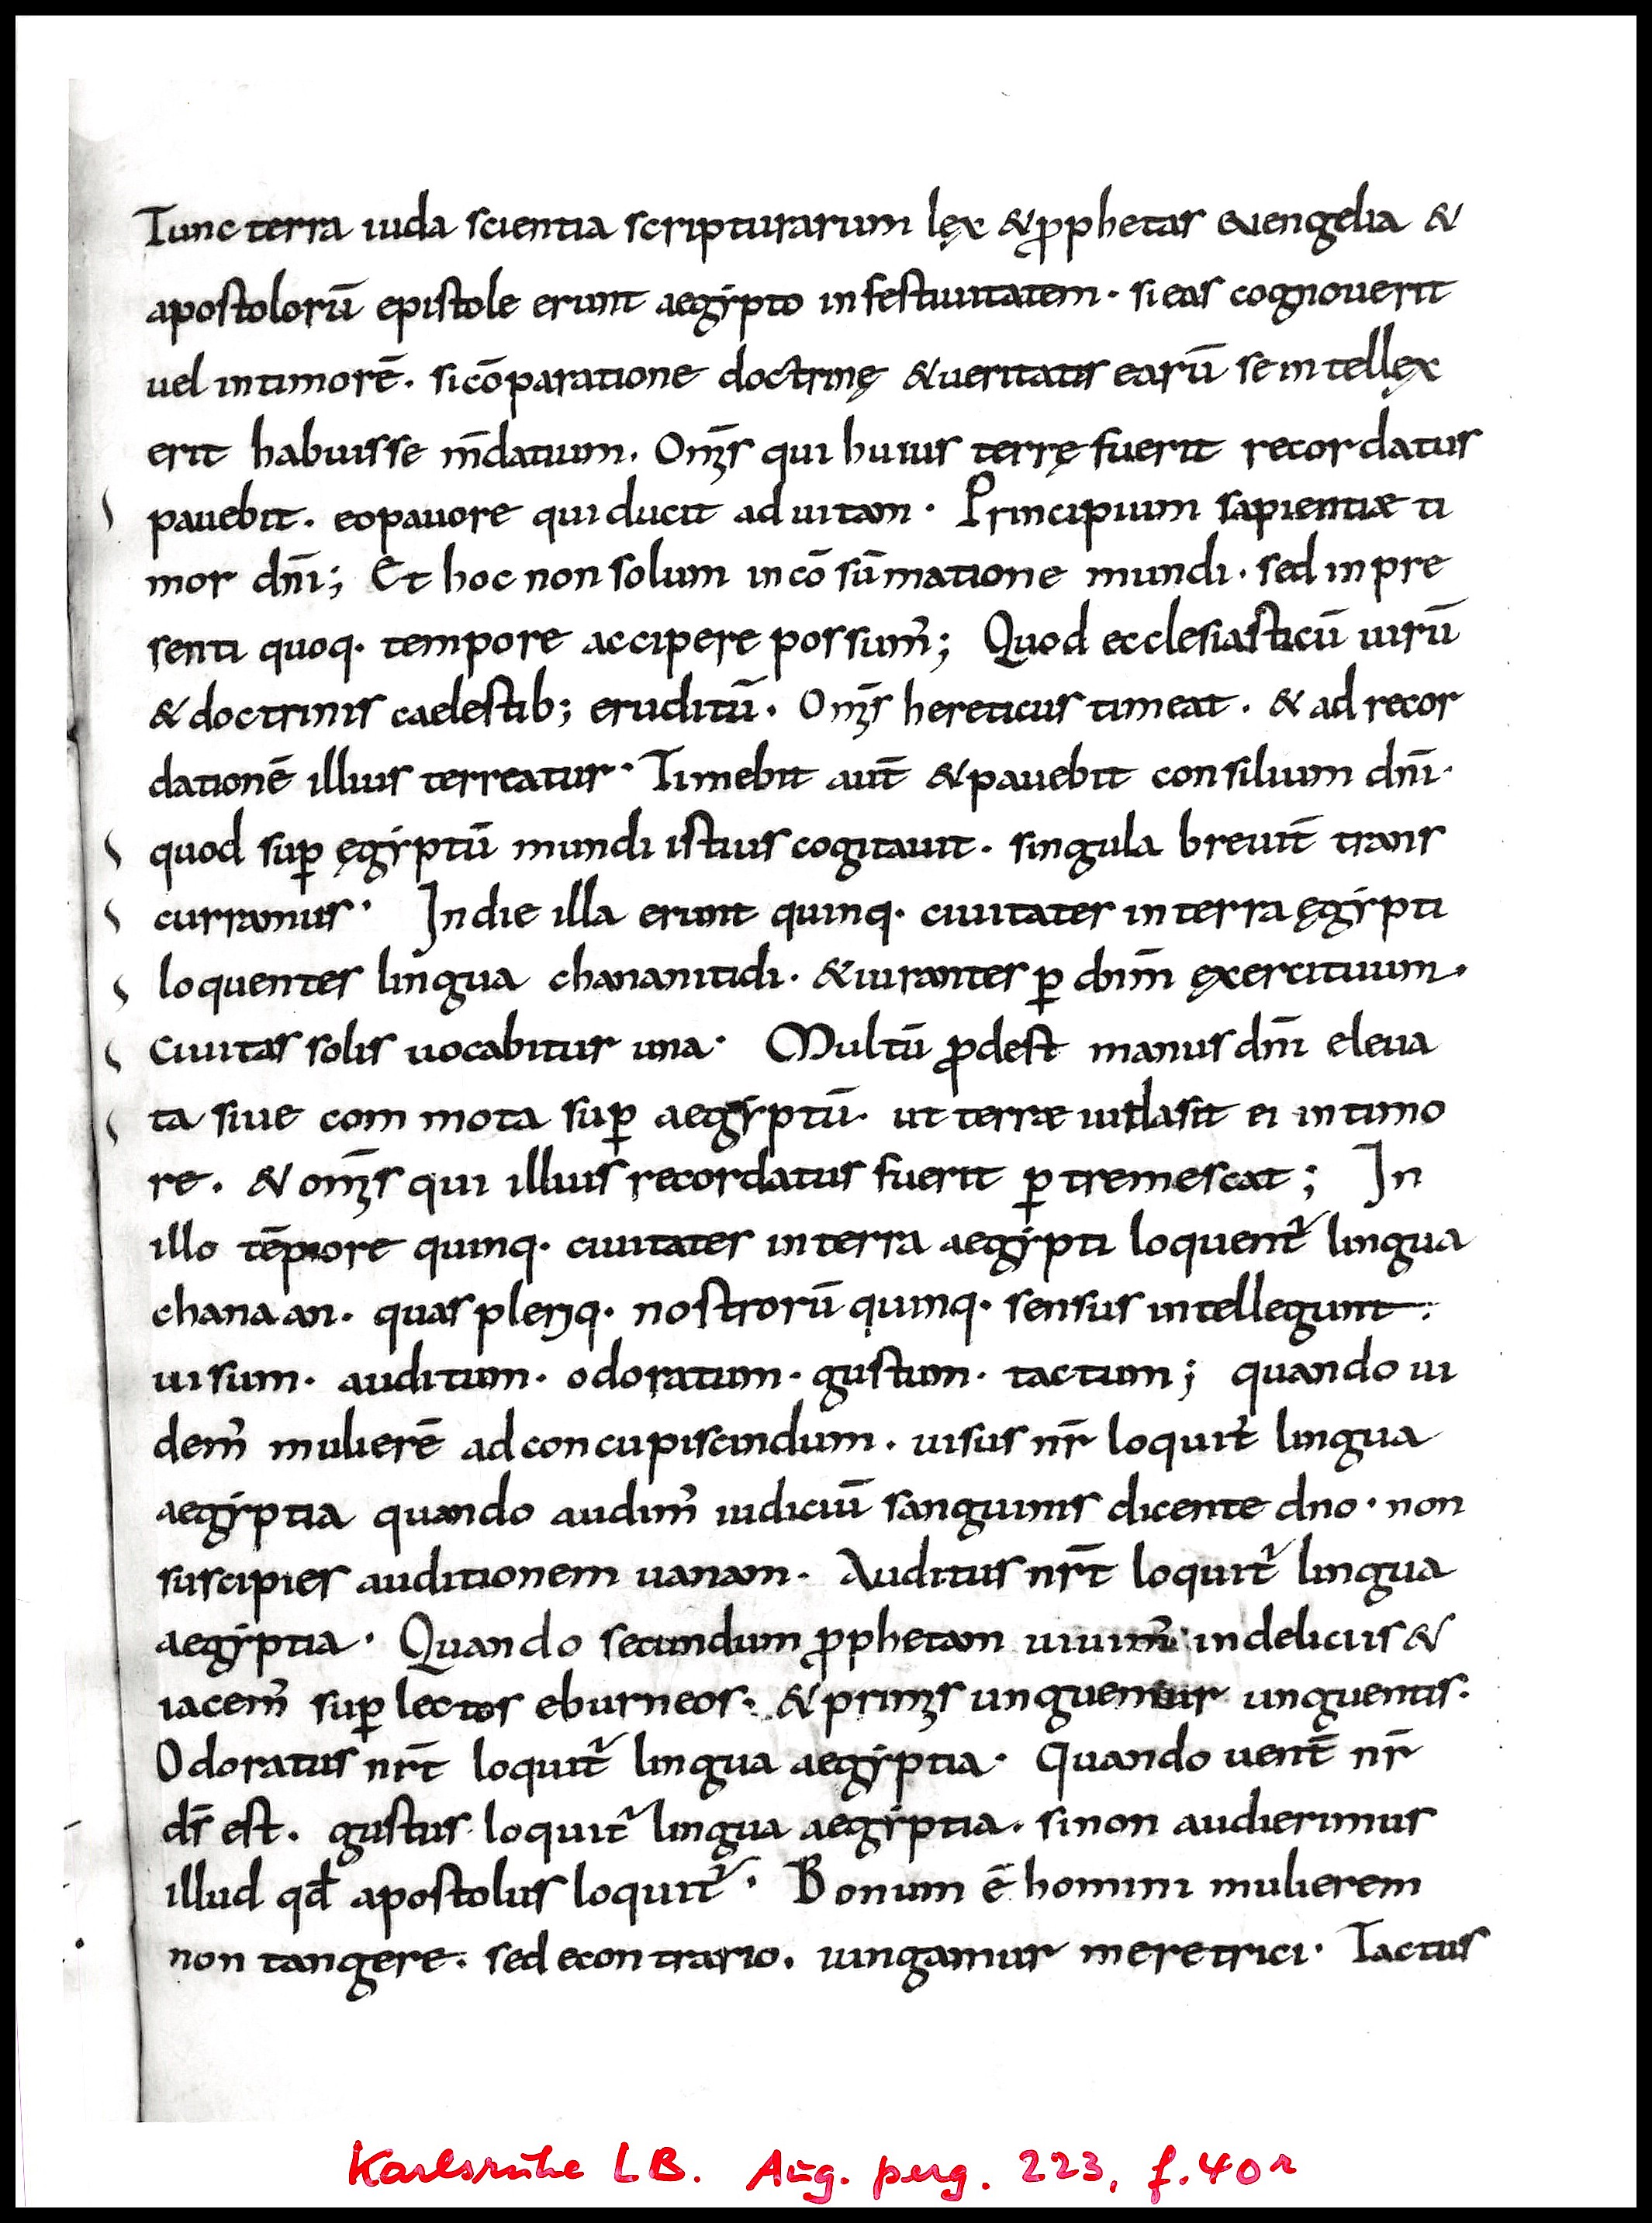 Tunc terra iuda scientia scripturarum lęx & ꝓphetas euengelia &
apostolorū epistole erunt aegẏpto infestiuitatem · si eas cognouerit
uel intimorē · si cōparatione doctrinę & ueritatis earū se intellęx
erit habuisse m̄datium · Om̄s qui huius terrę fuerit recordatus
pauebit · eopauore qui ducit ad uitam · Principium sapientiæ ti
mor dn̄i; Et hoc non solum in cō sūmatione mundi · sed in pre
senti quoq· tempore accipere possum᾽; Quod ecclesiasticū uirū
& doctrinis caelestib; eruditū · Om̄s hereticus timeat · & ad recor
dationē illius terreatur · Timebit aut̄ & pauebit consilium dn̄i ·
quod suꝑ ęgẏptū mundi istius cogitauit · singula breuit̄ trans
curramus · In die illa erunt quinq· ciuitates in terra ęgẏpti
loquentes lingua chananitidi · & iurantes ꝑ dn̄m ęxercituum ·
Ciuitas solis uocabitur una · Multū ꝓdest manus dn̄i eleua
ta siue com mota suꝑ aegẏptū · ut terræ iuda sit ei in timo
re · & om̄s qui illius recordatus fuerit ꝑtremescat; In
illo tēpore quinq· ciuitates in terra aegẏpti loquent᾽ lingua
chanaan · quas pleriq· nostrorū quinq· sensus intellegunt ·
uisum · auditum · odoratum · gustum · tactum; quando ui
dem᾽ mulierē ad concupiscindum · uisus nr̄ loquit᾽ lingua
aegẏptia quando audim᾽ iudiciū sanguinis dicente dno · non
suscipies auditionem uanam · Auditus nr̄t loquit᾽ lingua
aegẏptia · Quando secundum ꝓphetam uiuim᾽ in deliciis &
iacem᾽ suꝑ lectos eburneos · & prim̄s unguemur unguentis ·
Odoratus nr̄t loquit᾽ lingua aegẏptia · Quando uent̄ nr̄
ds̄ est · gustus loquit᾽ lingua aegẏptia · si non audierimus
illud qd̄ apostolus loquit᾽ · Bonum ē homini mulierem
non tangere · sed econtrario · iungamur meretrici · Tactus
Karlsruhe LB. Aug. perg. 223, f. 40r